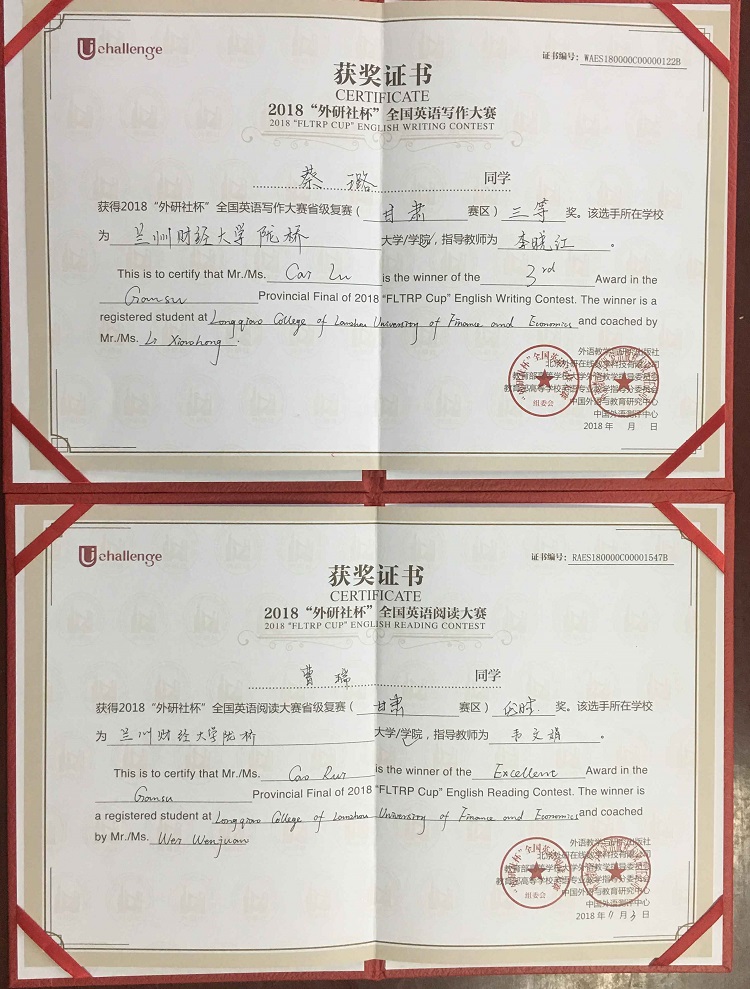 Uchallenge
证书编号: WAES180000C00000122B
获奖证书
CERTIFICATE
2018 “外研社杯” 全国英语写作大赛
2018 “FLTRP CUP” ENGLISH WRITING CONTEST
蔡 璐 同学
获得2018 “外研社杯” 全国英语写作大赛省级复赛（ 甘肃 赛区）三等 奖。该选手所在学校
为 兰州财经大学陇桥 大学/学院，指导教师为 李晓红 。
This is to certify that Mr./Ms. Cai Lu is the winner of the 3rd Award in the
Gansu Provincial Final of 2018 “FLTRP Cup” English Writing Contest. The winner is a
registered student at Longqiao College of Lanzhou University of Finance and Economics and coached by
Mr./Ms. Li Xiaohong.
外语教学与研究出版社
北京外研在线教育科技有限公司
教育部高等学校大学外语教学指导委员会
教育部高等学校英语专业教学指导分委员会
中国外语与教育研究中心
中国外语测评中心
组委会
2018 年 月 日
Uchallenge
证书编号: RAES180000C00001547B
获奖证书
CERTIFICATE
2018 “外研社杯” 全国英语阅读大赛
2018 “FLTRP CUP” ENGLISH READING CONTEST
曹 瑞 同学
获得2018 “外研社杯” 全国英语阅读大赛省级复赛（ 甘肃 赛区）优胜 奖。该选手所在学校
为 兰州财经大学陇桥 大学/学院，指导教师为 韦文娟 。
This is to certify that Mr./Ms. Cao Rui is the winner of the Excellent Award in the
Gansu Provincial Final of 2018 “FLTRP Cup” English Reading Contest. The winner is
a registered student at Longqiao College of Lanzhou University of Finance and Economics and coached
by Mr./Ms. Wei Wenjuan
外语教学与研究出版社
北京外研在线教育科技有限公司
教育部高等学校大学外语教学指导委员会
教育部高等学校英语专业教学指导分委员会
中国外语与教育研究中心
中国外语测评中心
组委会
2018 年 11 月 3 日